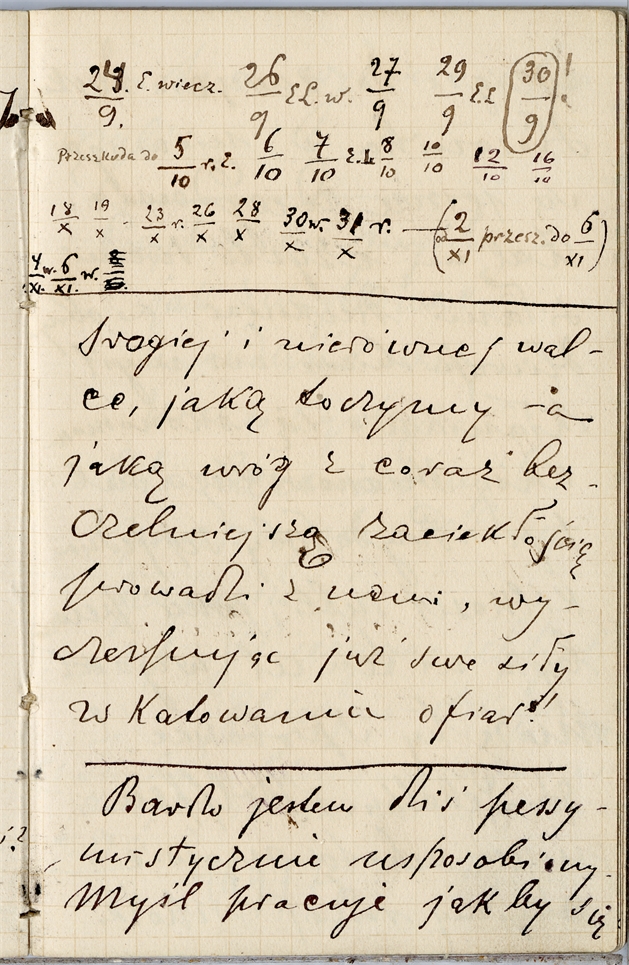 24/9. Ł. wiecz. 26/9 Ł.Ł. w. 27/9 29/9 Ł.Ł 30/9!
Przeszkoda do 5/10 r. Ł. 6/10 7/10 Ł. 8/10 10/10 12/10 16/10
18/X 19/X - 23/X r. 26/X 28/X 30/X w. 31/X r. — (od 2/XI przesz. do 6/XI)
4/XI. w. 6/XI. w.
srogiej i nierównej wal-
ce, jaką toczymy - a
jaką wróg z coraz bez-
czelniejszą zaciekłością
prowadzi z nami, wy-
czerpując już swe siły
w katowaniu ofiar!
Bardzo jestem dziś pessy-
mistycznie usposobiony.
Myśl pracuje jak by się